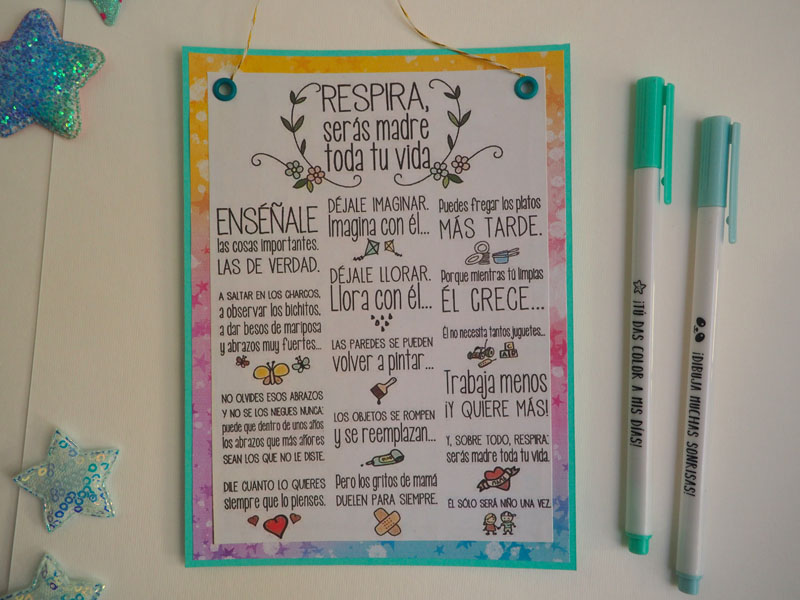 RESPIRA,
serás madre
toda tu vida
ENSÉÑALE
las cosas importantes.
LAS DE VERDAD.
A SALTAR EN LOS CHARCOS,
a observar los bichitos,
a dar besos de mariposa
y abrazos muy fuertes...
NO OLVIDES ESOS ABRAZOS
Y NO SE LOS NIEGUES NUNCA:
puede que dentro de unos años
los abrazos que más añores
SEAN LOS QUE NO LE DISTE.
DILE CUÁNTO LO QUIERES
siempre que lo pienses.
DÉJALE IMAGINAR.
Imagina con él...
DÉJALE LLORAR.
Llora con él...
LAS PAREDES SE PUEDEN
volver a pintar...
LOS OBJETOS SE ROMPEN
y se reemplazan...
Pero los gritos de mamá
DUELEN PARA SIEMPRE.
Puedes fregar los platos
MÁS TARDE.
Porque mientras tú limpias
ÉL CRECE...
Él no necesita tantos juguetes...
Trabaja menos
¡Y QUIERE MÁS!
Y, SOBRE TODO, RESPIRA:
serás madre toda tu vida.
ÉL SÓLO SERÁ NIÑO UNA VEZ.
¡TÚ DAS COLOR A MIS DÍAS!
¡DIBUJA MUCHAS SONRISAS!